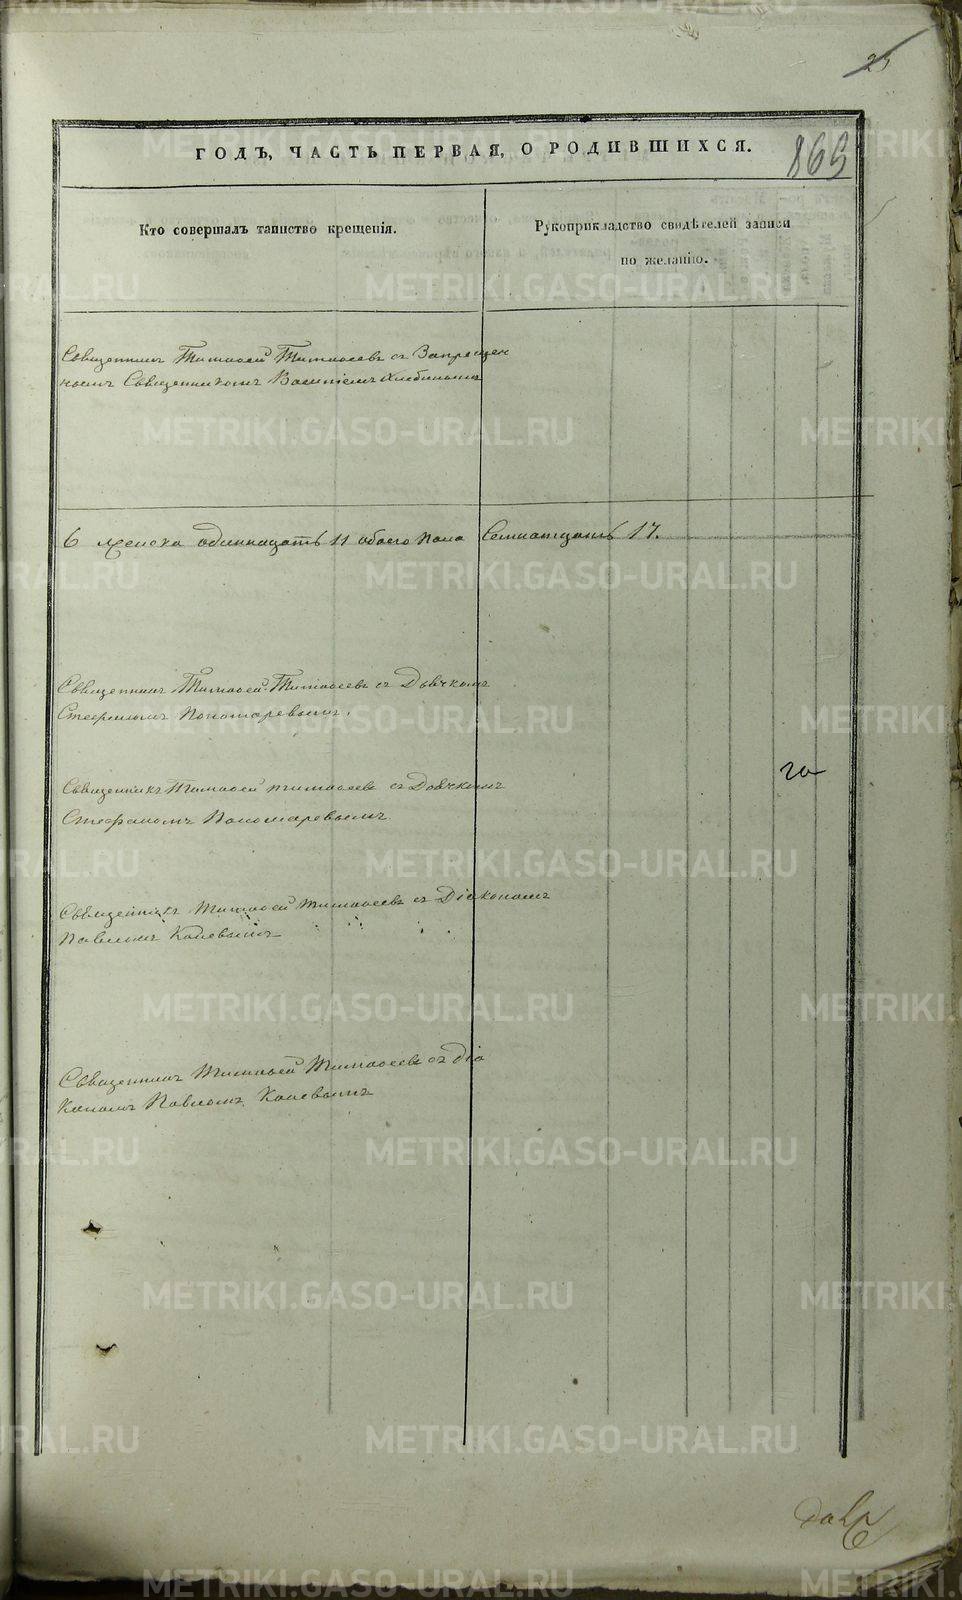 25
865
ГОДЪ, ЧАСТЬ ПЕРВАЯ, О РОДИВШИХСЯ.
Кто совершалъ таинство крещенія.
Рукоприкладство свидѣтелей записи
по желанію.
Священникъ Тимоѳей Тимоѳеевъ съ Запрещен
нымъ Священникомъ Василіемъ
6 женска одиннадцать 11 обоего пола Семнатцать 17.
Священникъ Тимоѳей Тимоѳеевъ съ Дьячкомъ
Стефаномъ Пономаревымъ.
Священникъ Тимоѳей Тимоѳеевъ съ Дьячкомъ
Стефаномъ Пономаревымъ
Священникъ Тимоѳей Тимоѳеевъ съ Діакономъ
Павломъ
Священникъ Тимоѳей Тимоѳеевъ съ Діа
кономъ Павломъ
METRIKI.GASO-URAL.RU